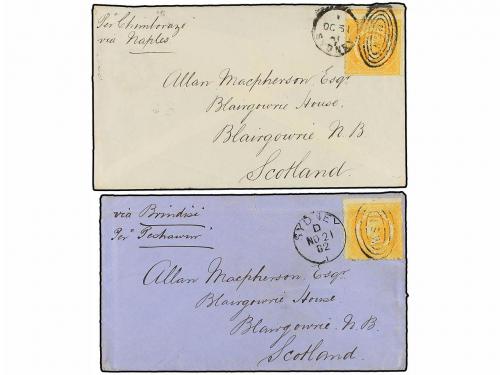 Per "Chimborazo"
via Naples
SYDNEY
Allan Macpherson, Esqr
Blairgowrie House,
Blairgowrie N. B.
Scotland.
via Brindisi
Per "Peshawur"
SYDNEY
D
NO 21
82
Allan Macpherson, Esqr
Blairgowrie House
Blairgowrie. N. B.
Scotland.